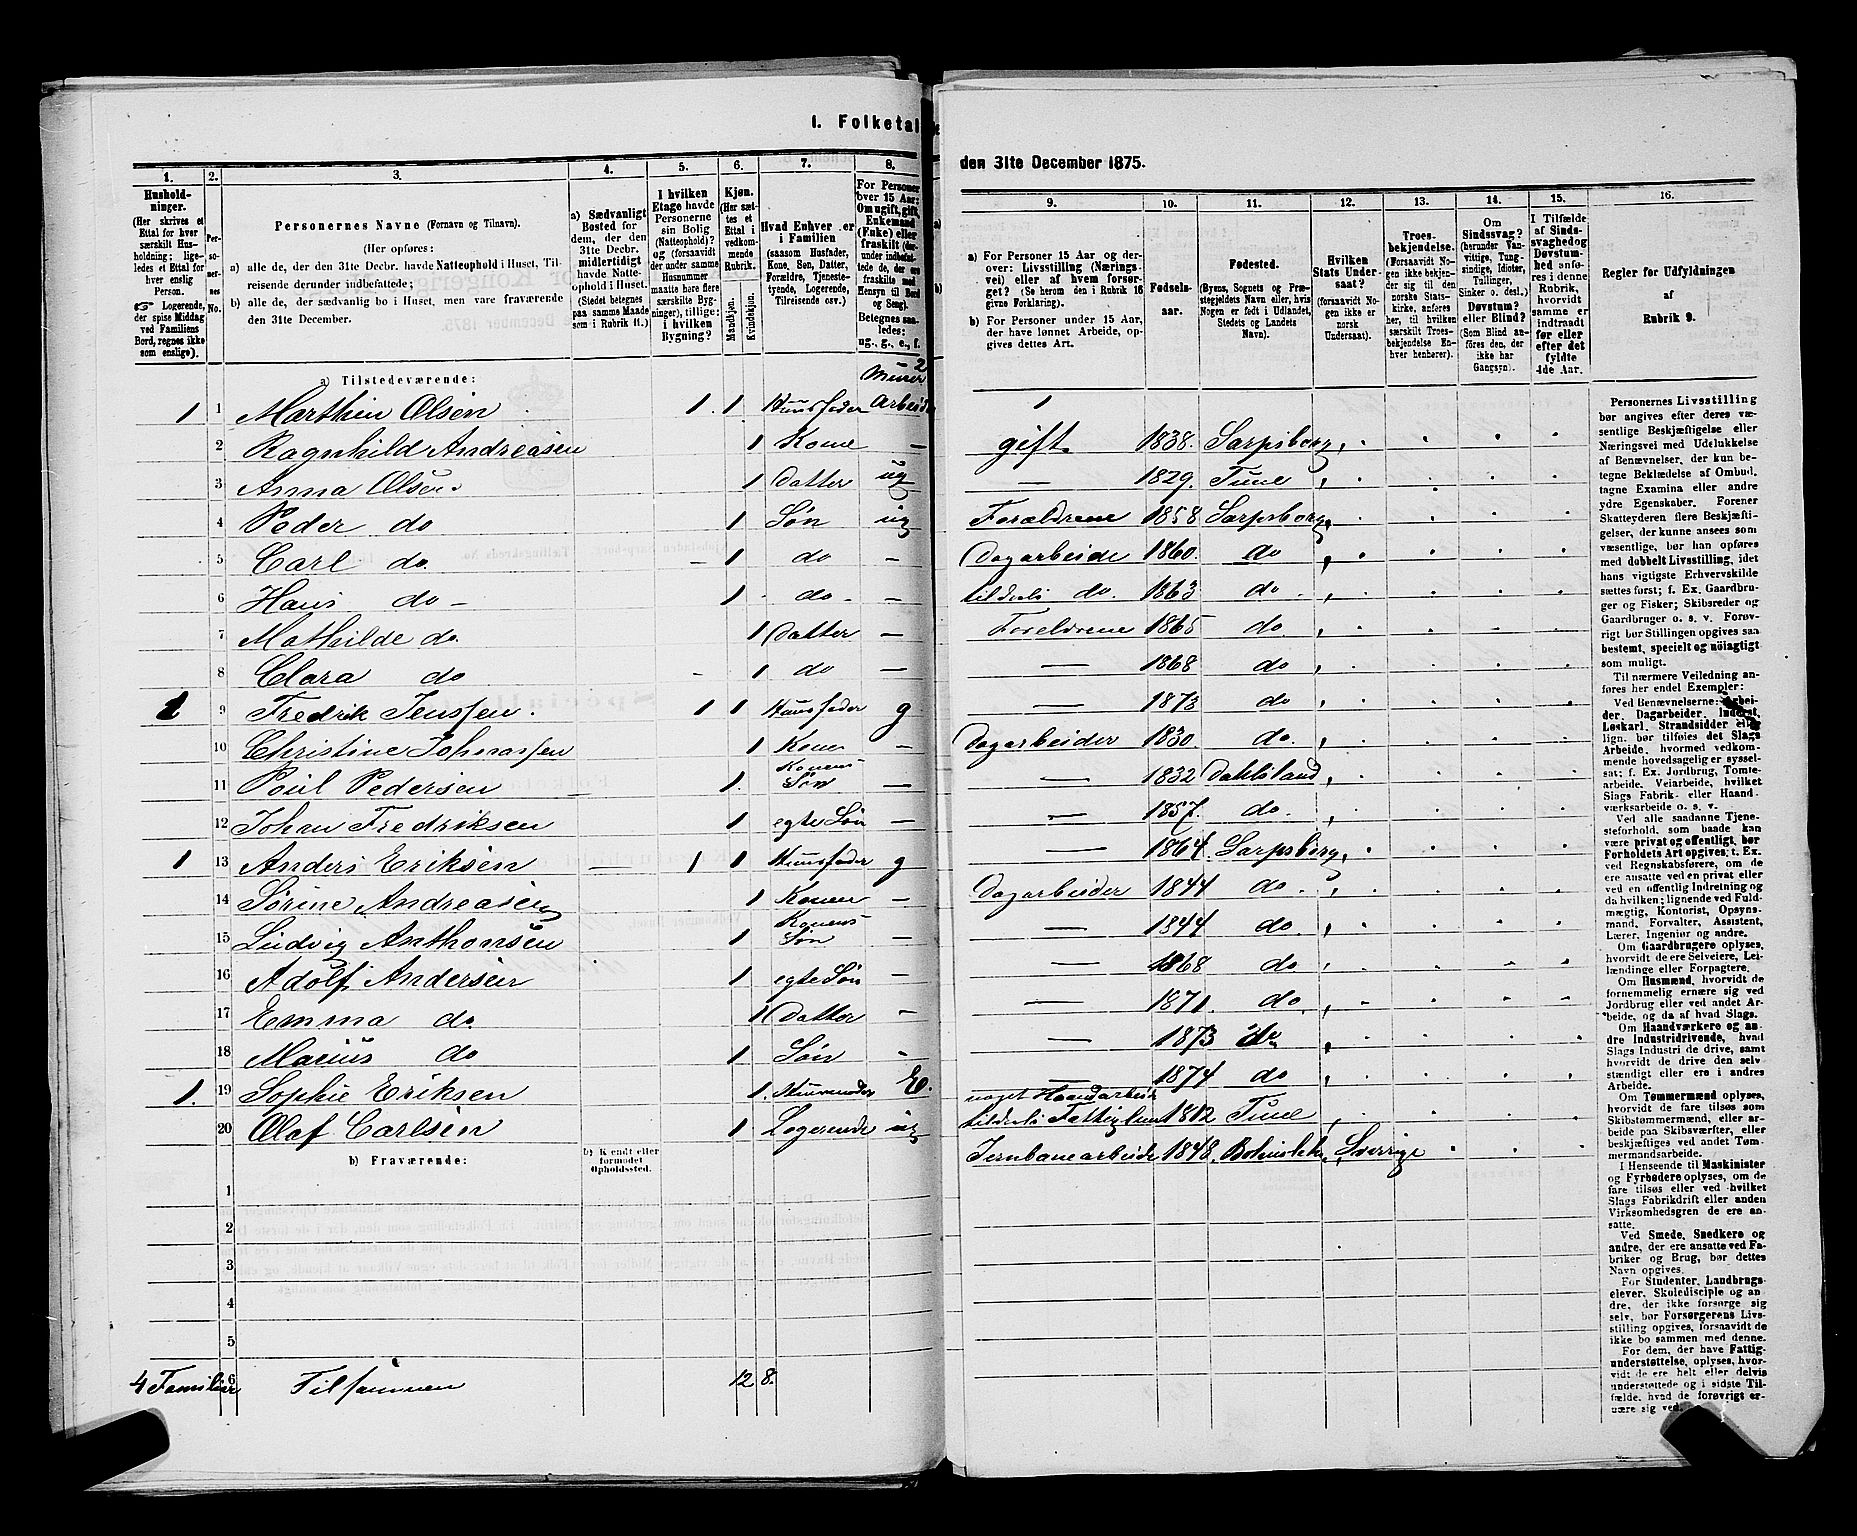 I. Folketal
1.
2.
3.
4.
5.
6.
7.
8.
Hushold-
ninger.
(Her skrives et
Ettal for hver
særskilt Hus-
holdning; lige-
ledes et Ettal for
hver enslig
Person.
☞ Logerende,
der spise Middag
ved Familiens
Bord, regnes ikke
som enslige).
Per-
so-
ner-
nes
No.
Personernes Navne (Fornavn og Tilnavn).
(Her opføres:
a) alle de, der den 31te Decbr. havde Natteophold i Huset, Til-
reisende derunder indbefattede;
b) alle de, der sædvanlig bo i Huset, men vare fraværende
den 31te December.
a) Sædvanligt
Bosted for
dem, der den
31te Decbr.
midlertidigt
havde Natte-
ophold i Huset.
(Stedet betegnes
paa samme Maade
som i Rubrik 11.)
I hvilken
Etage havde
Personerne
sin Bolig
(Natteophold)?
og (forsaavidt
der under samme
Husnummer
maatte høre flere
særskilte Byg-
ninger), tillige:
i hvilken
Bygning?
Kjøn.
(Her sæt-
tes et
Ettal i
vedkom-
mende
Rubrik.
Mandkjøn.
Kvindekjøn.
Hvad Enhver er
i Familien
(saasom Husfader,
Kone, Søn, Datter,
Forældre, Tjeneste-
tyende, Logerende,
Tilreisende osv.)
For Personer
over 15 Aar:
Om ugift, gift,
Enkemand
(Enke) eller
fraskilt
Betegnes saa-
ledes:
ug., g., e., f.
a) Tilstedeværende:
1 1 Marthin Olsen 1. 1 Huusfader Murer Arbeide
2 Ragnhild Andreasen 1 Kone —
3 Anna Olsen 1 Datter ug
4 Peder do 1 Søn ug
5 Carl do. - 1 do —
6 Hans do - 1 do - —
7 Mathilde do. 1 Datter —
8 Clara do - 1 do —
1 9 Fredrik Jenssen. 1 1 Huusfader g
10 Christine Johnassen 1 Konen —
11 Poul Pedersen 1. Konens Søn —
12 Johan Fredriksen 1 egte Søn —
1 13 Anders Eriksen 1 1 Huusfader g
14 Sørine Andreasen 1 Konen —
15 Ludvig Anthonsen 1 Konens Søn —
16 Adolf Andersen 1 egte Søn —
17 Emma do 1 Datter -
18 Marius do 1 Søn -
1. 19 Sophie Eriksen 1. Huusmoder E.
20 Olaf Carlsen 1 Logerende ug
b) Fraværende:
b) Kendt eller
formodet
Opholdssted.
1
2
3
4
5
6
4 Familier Tilsammen 12 8.
den 31te December 1875.
9.
10.
11.
12.
13.
14.
15.
16.
a) For Personer 15 Aar og der-
over: Livsstilling (Nærings-
vei) eller af hvem forsør-
get? (Se herom den i Rubrik 16
givne Forklaring).
b) For Personer under 15 Aar,
der have lønnet Arbeide, op-
gives dettes Art.
Fødsels-
aar.
Fødested.
(Byens, Sognets og Præs-
tegjeldets Navn eller, hvis
Nogen er født i Udlandet,
Stedets og Landets
Navn).
Hvilken
Stats Under-
saat?
(forsaavidt No-
gen ikke er
norsk
Undersaat).
Troes-
bekjendelse.
(Forsaavidt No-
gen ikke bekjen-
der sig til den
norske Stats-
kirke, anføres
her, til hvilken
særskilt Troes-
bekjendelse En-
hver henhører).
Om
Sindssvag?
(herunder Van-
vittige, Tung-
sindige, Idioter,
Tullinger,
Sinker o. desl.)
Døvstum?
eller Blind?
(Som Blind an-
føres den, der
ikke har
Gangsyn).
I Tilfælde
af Sinds-
svaghed og
Døvstum-
hed anfø-
res i denne
Rubrik,
hvorvidt
samme er
indtraadt
før eller
efter det
fyldte
4de Aar.
Regler for Udfyldningen
af
Rubrik 9.
1
gift. 1838. Sarpsborg,
— 1829. Tune
Forældrene 1858 Sarpsborg,
Dagarbeide 1860. do
tildeels do. 1863 do
Foreldrene 1865 do
— 1868 do
— 1873 do.
Dagarbeider 1830. do.
— 1832 Dahlsland
— 1857. do.
— 1864. Sarpsborg,
Dagarbeider 1844 do.
— 1844 do.
— 1868 do
— 1871. do.
— 1873 do
— 1874 do
noget Haandarbeide
tildeels Fattiglem 1812 Tune
Jernbanearbeide 1848. Sverrige
Personernes Livsstilling
bør angives efter deres væ-
sentlige Beskjæftigelse eller
Næringsvei med Udelukkelse
af Benævnelser, der kun be-
tegne Beklædelse af Ombud,
tagne Examina eller andre
ydre Egenskaber. Forener
Skatteyderen flere Beskjæfti-
gelser, der kunne ansees som
væsentlige, bør han opføres
med dobbelt Livsstilling, idet
hans vigtigste Erhvervskilde
sættes først; f. Ex. Gaardbru-
ger og Fisker; Skibsreder og
Gaardbruger o. s. v. Forøv-
rigt bør Stillingen opgives saa
bestemt, specielt og nöiagtigt
som muligt.
Til nærmere Veiledning an-
føres her endel Exempler:
Ved Benævnelserne: Arbei-
der, Dagarbeider, Inderst,
Løskarl, Strandsidder eller
lign. bør tilføies det Slags
Arbeide, hvormed vedkom-
mende hovedsagelig er syssel-
sat; f. Ex. Jordbrug, Tomte-
arbeide, Veiarbeide, hvilket
Slags Fabrik- eller Haand-
værksarbeide o. s. v.
Ved alle saadanne Tjene-
steforhold, som baade kan
være privat og offentligt, bør
Forholdets Art opgives; t. Ex.
ved Regnskabsførere, om de
ere ansatte ved en privat eller
ved en offentlig Indretning og
da hvilken; lignende ved Fuld-
mægtig, Kontorist, Opsyns-
mand, Forvalter, Assistent,
Lærer, Ingeniør og andre.
Om Gaardbrugere oplyses,
hvorvidt de ere Selveiere, Lei-
lændinge eller Forpagtere.
Om Husmænd, hvorvidt de
fornemmelig ernære sig ved
Jordbrug eller ved andet Ar-
beide, og da af hvad Slags.
Om Haandværkere og an-
dre Industridrivende, hvad
Slags Industri de drive, samt
hvorvidt de drive den selv-
stændigt eller ere i andres
Arbeide.
Om Tømmermænd oplyses,
hvorvidt de fare tilsøs som
Skibstømmermænd, eller ar-
beide paa Skibsværfter, eller
beskjæftiges ved andet Tøm-
mermandsarbeide.
I Henseende til Maskinister
og Fyrbødere oplyses, om de
fare tilsøs eller ved hvilket
Slags Fabrikdrift eller anden
Virksomhedsgren de ere an-
satte.
Ved Smede, Snedkere og
andre, der ere ansatte ved Fa-
briker og Brug, bør dettes
Navn opgives.
For Studenter, Landbrugs-
elever, Skoledisciple og an-
dre, der ikke forsørge sig
selv, bør Forsørgerens Livs-
stilling opgives, forsaavidt de
ikke bo sammen med denne.
For dem, der have Fattig-
understøttelse, oplyses, hvor-
vidt de ere helt eller delvis
understøttede og i sidste Til-
fælde, hvad de forøvrigt er-
nære sig ved.